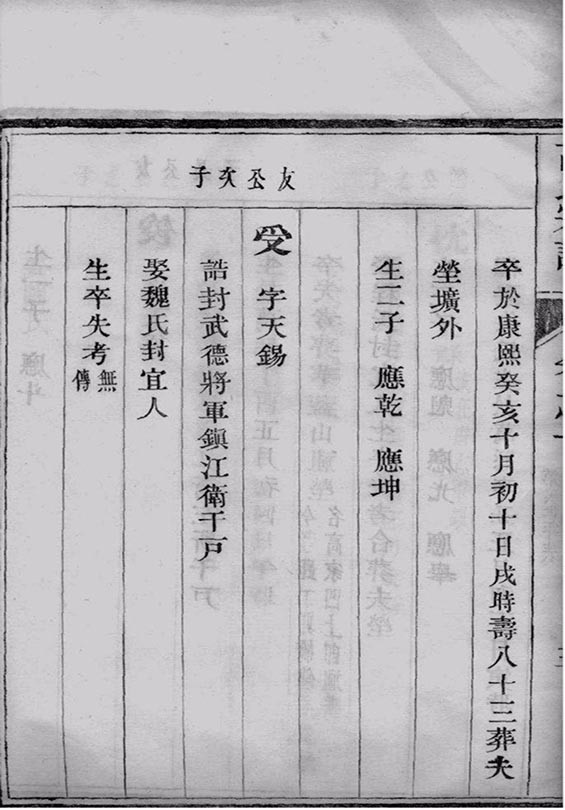 友公次子
卒於康熙癸亥十月初十日戌時壽八十三葬夫
塋壙外
生二子 應乾 應坤
受 字天錫
誥封武德將軍鎮江衛千戸
娶魏氏封宜人
生卒失考無傳